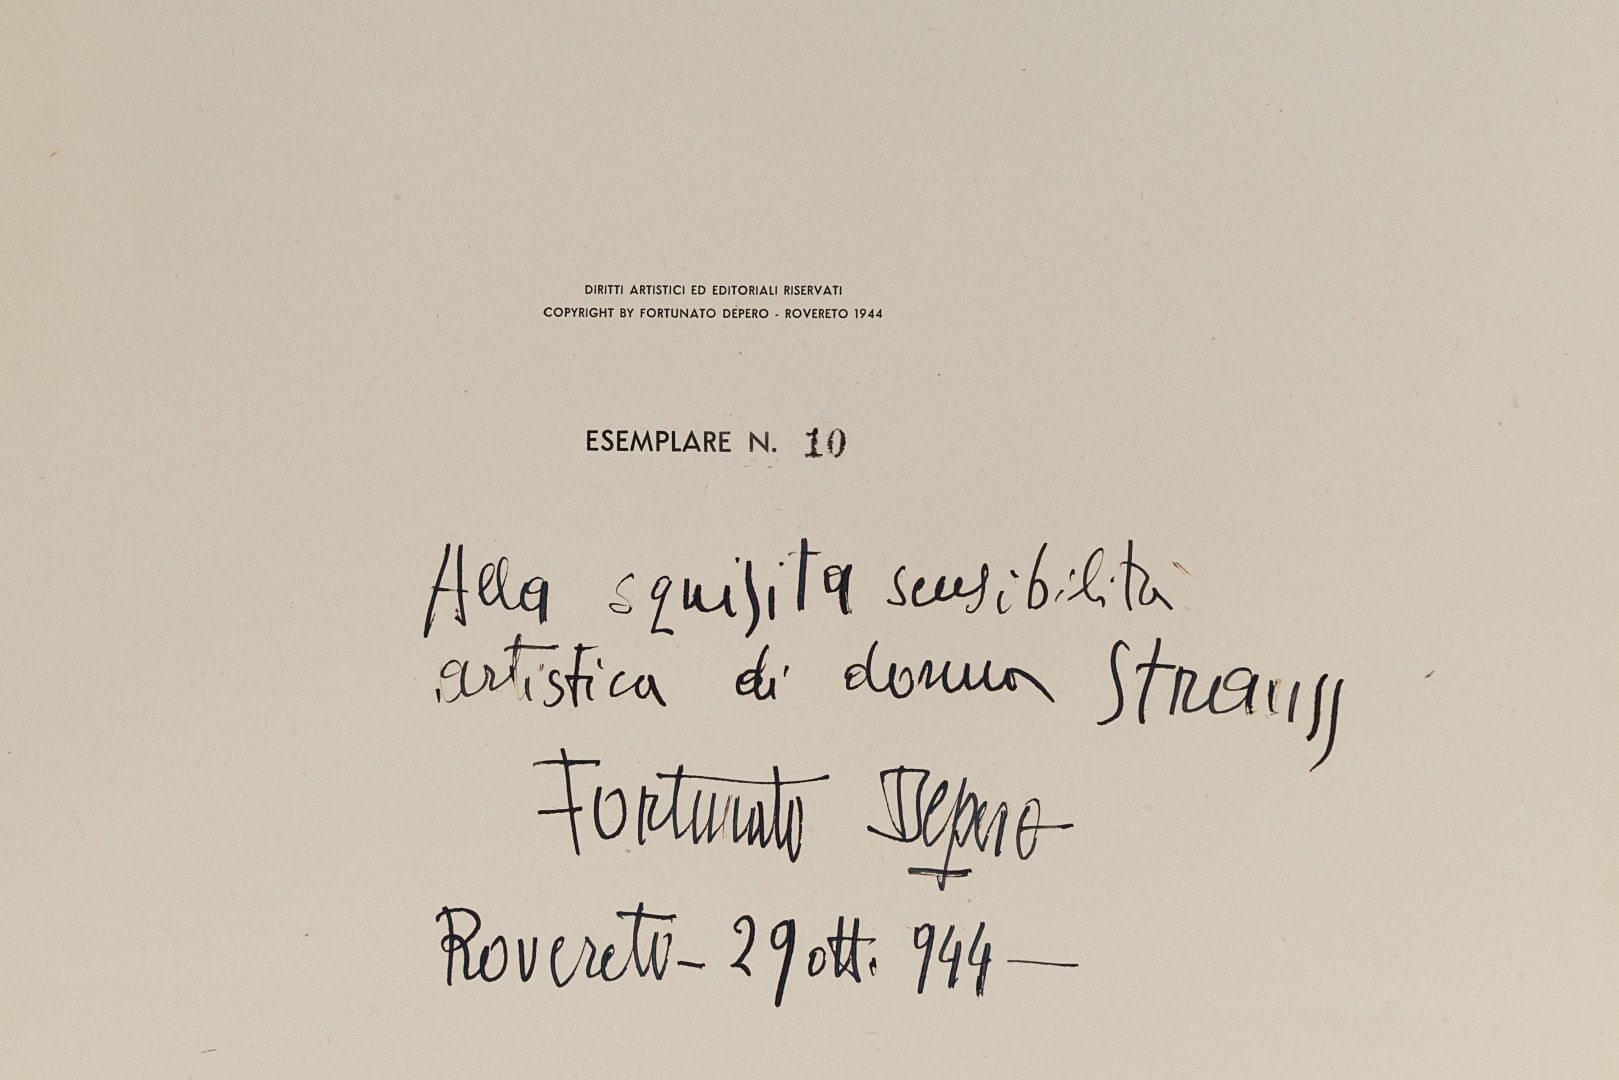 DIRITTI ARTISTICI ED EDITORIALI RISERVATI
COPYRIGHT BY FORTUNATO DEPERO - ROVERETO 1944
ESEMPLARE N. 10
Alla squisita sensibilità
artistica di donna Strauss
Fortunato Depero
Rovereto - 29 ott. 944 —